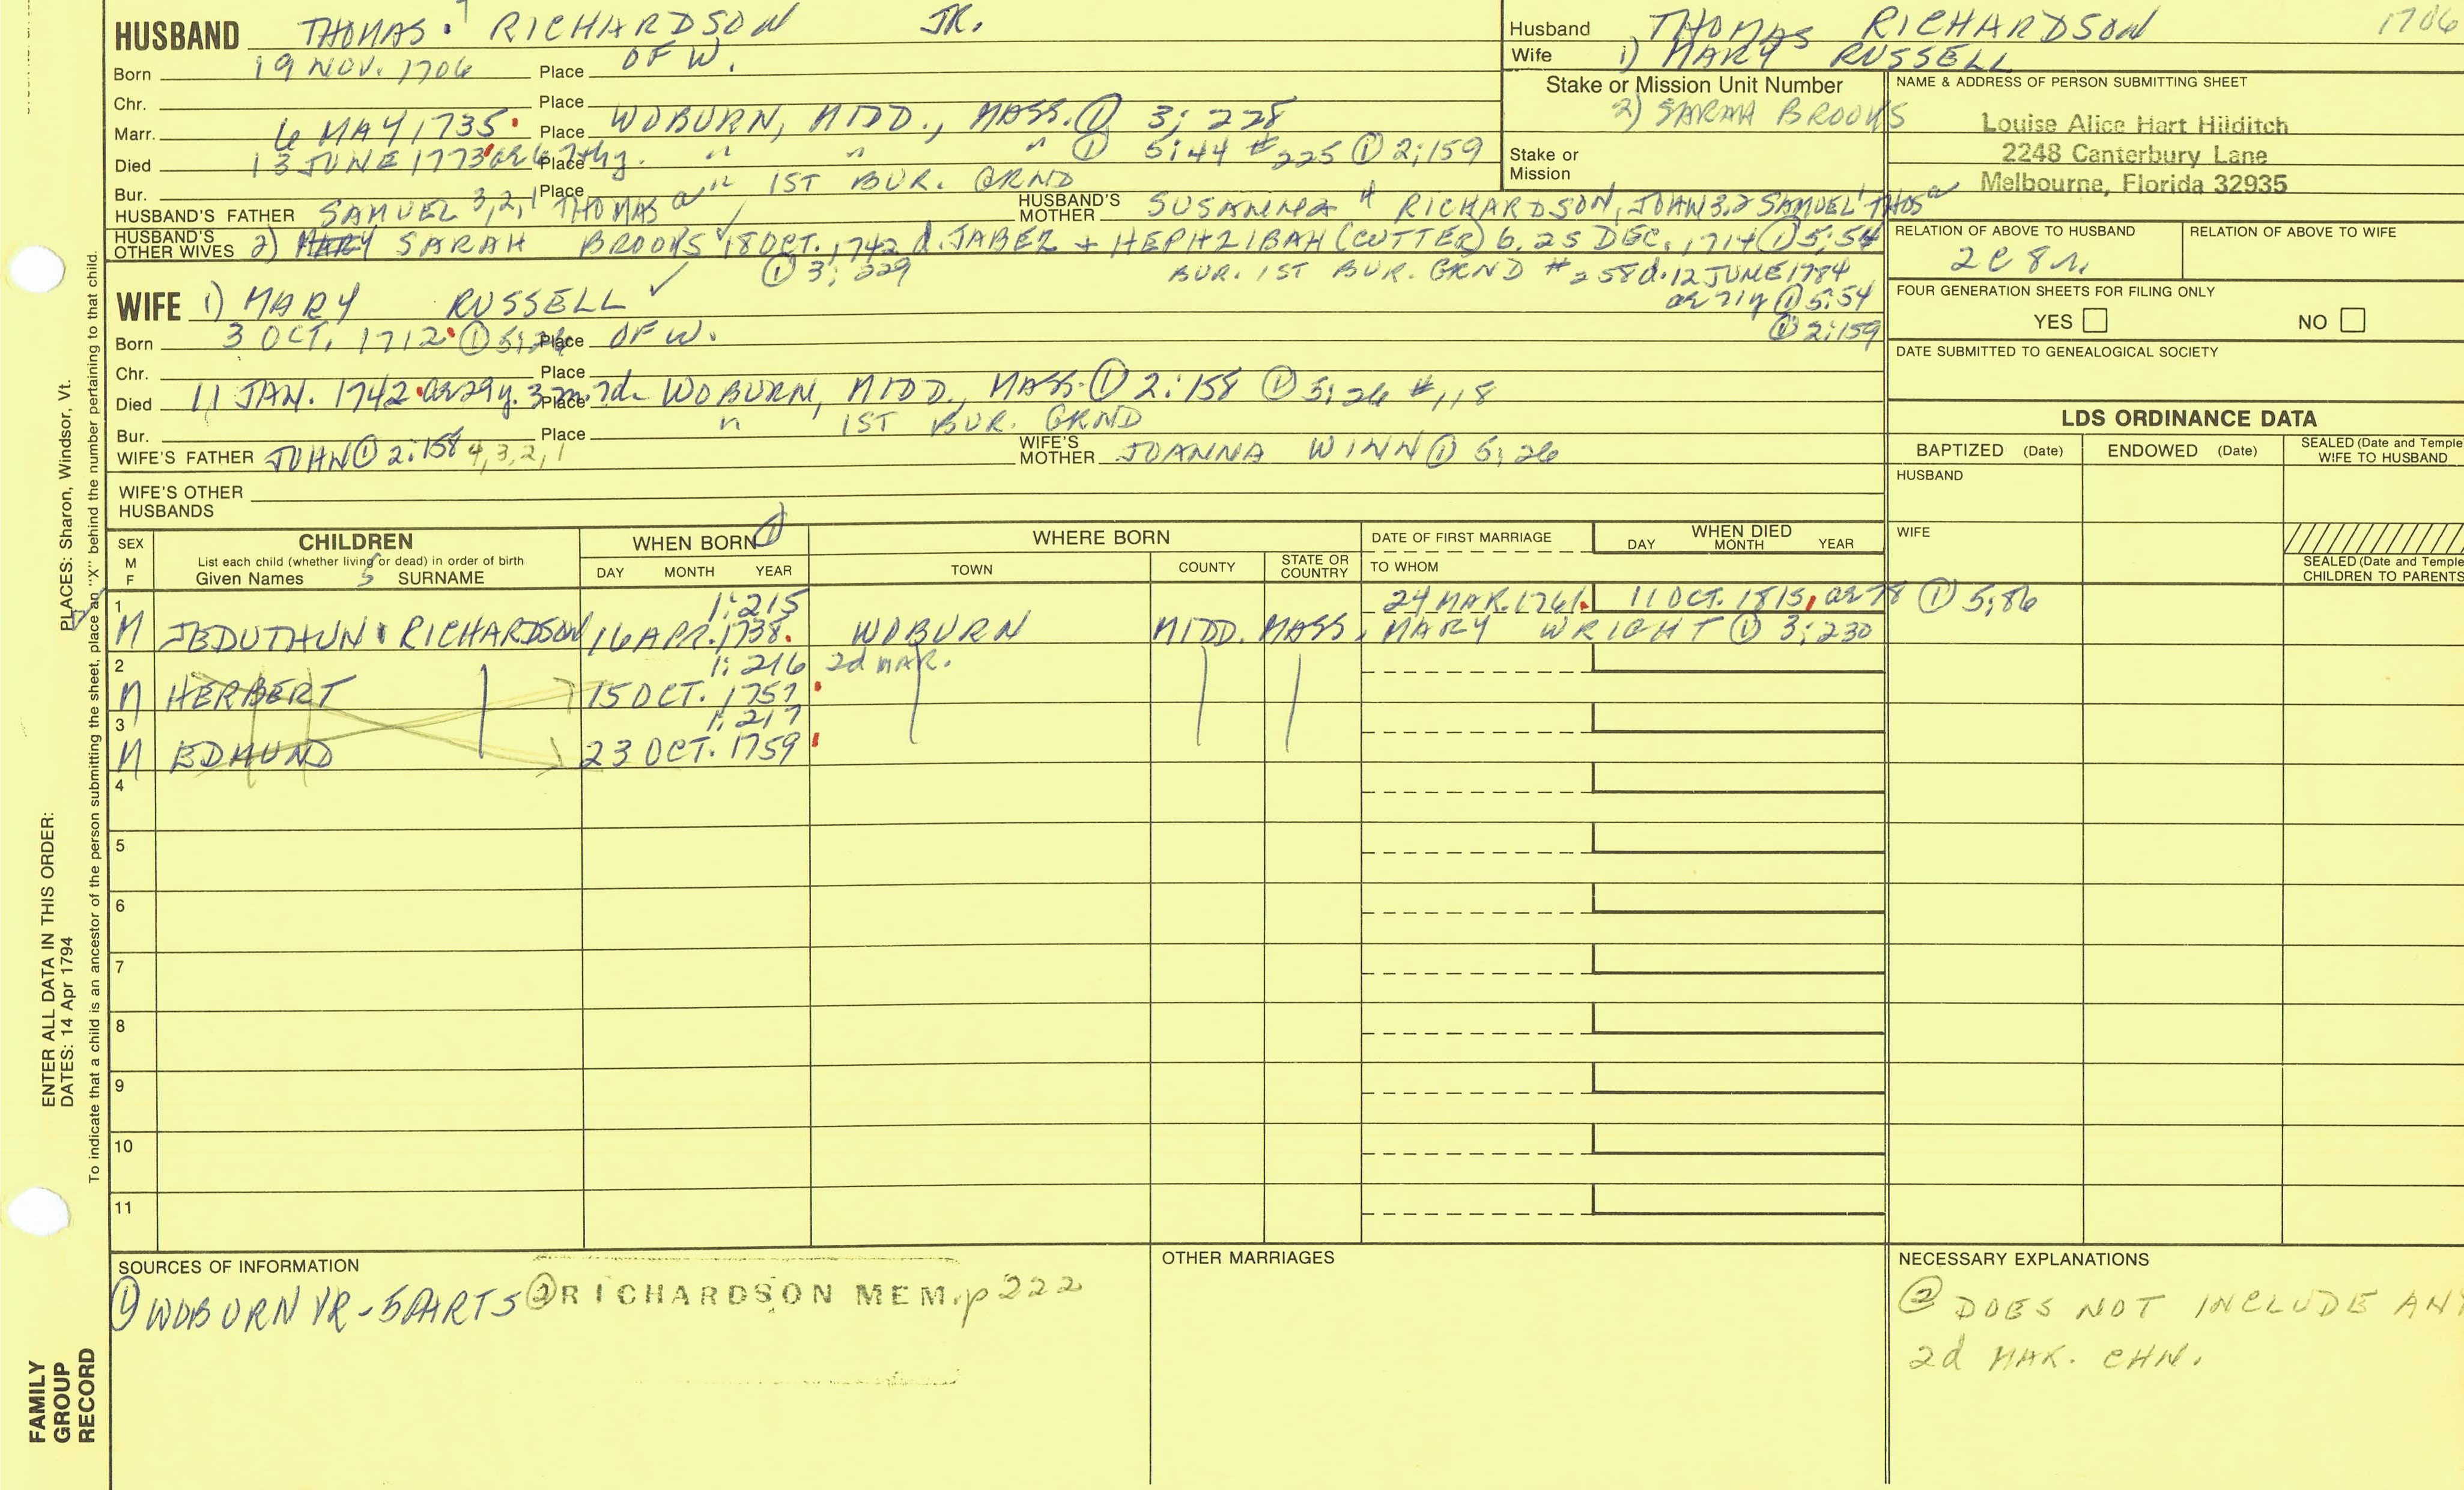 HUSBAND THOMAS. RICHARDSON JR.
Born 19 NOV. 1706 Place OF W.
Chr. Place
Marr. 6 MAY 1735. Place WOBURN, MIDD., MASS. ① 3; 228
Died 13 JUNE 1773 ae 67thy. Place " " " ① 5:44 #225 ① 2;159
Bur. Place " 1ST BUR. GRND
HUSBAND'S FATHER SAMUEL 3,2,1 THOMAS a
HUSBAND'S MOTHER SUSANNA 4 RICHARDSON, JOHN 3,2 SAMUEL 1 THOS a
HUSBAND'S OTHER WIVES 2) SARAH BROOKS 18 OCT. 1742 d. JABEZ + HEPHZIBAH (CUTTER) b. 25 DEC. 1714 ① 5:54
① 3; 229 BUR. 1ST BUR. GRND #258 d. 12 JUNE 1784
ae 71y ① 5:54
① 2:159
WIFE 1) MARY RUSSELL
Born 3 OCT. 1712. ① 5;26 Place OF W.
Chr. Place
Died 11 JAN. 1742. ae 29y. 3m. 7d. Place WOBURN, MIDD., MASS. ① 2:158 ① 5:26 #118
Bur. Place " 1ST BUR. GRND
WIFE'S FATHER JOHN ① 2:158 4,3,2,1
WIFE'S MOTHER JOANNA WINN ① 5;26
WIFE'S OTHER HUSBANDS
Husband THOMAS RICHARDSON 1706
Wife 1) MARY RUSSELL
Stake or Mission Unit Number
2) SARAH BROOKS
Stake or Mission
NAME & ADDRESS OF PERSON SUBMITTING SHEET
Louise Alice Hart Hilditch
2248 Canterbury Lane
Melbourne, Florida 32935
RELATION OF ABOVE TO HUSBAND RELATION OF ABOVE TO WIFE
2C 8r.
FOUR GENERATION SHEETS FOR FILING ONLY
YES NO
DATE SUBMITTED TO GENEALOGICAL SOCIETY
LDS ORDINANCE DATA
BAPTIZED (Date) ENDOWED (Date) SEALED (Date and Temple
WIFE TO HUSBAND
HUSBAND
WIFE
SEALED (Date and Temple
CHILDREN TO PARENTS
SEX M F
CHILDREN
List each child (whether living or dead) in order of birth
Given Names SURNAME
WHEN BORN ①
DAY MONTH YEAR
WHERE BORN
TOWN COUNTY STATE OR COUNTRY
DATE OF FIRST MARRIAGE
TO WHOM
WHEN DIED
DAY MONTH YEAR
1 1:215 24 MAR. 1761. 11 OCT. 1815, ae 78 ① 5;86
M JEDUTHUN RICHARDSON 16 APR. 1738. WOBURN MIDD. MASS. MARY WRIGHT ① 3;230
2 1:216 2d MAR.
M HERBERT 15 OCT. 1757
3 1:217
M EDMUND 23 OCT. 1759
4
5
6
7
8
9
10
11
SOURCES OF INFORMATION
① WOBURN VR-5 PARTS ② RICHARDSON MEM. p 222
OTHER MARRIAGES
NECESSARY EXPLANATIONS
② DOES NOT INCLUDE ANY
2d MAR. CHN.
PLACES: Sharon, Windsor, Vt.
ENTER ALL DATA IN THIS ORDER:
DATES: 14 Apr 1794
To indicate that a child is an ancestor of the person submitting the sheet, place an "X" behind the number pertaining to that child.
FAMILY
GROUP
RECORD